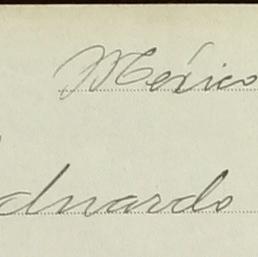 México
duardo